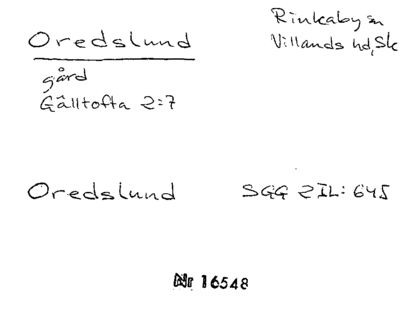 Oredslund
Rinkaby sn
Villands hd, Sk
gård
Gälltofta 2:7
Oredslund
SGG ZIL: 645
Nr 16548